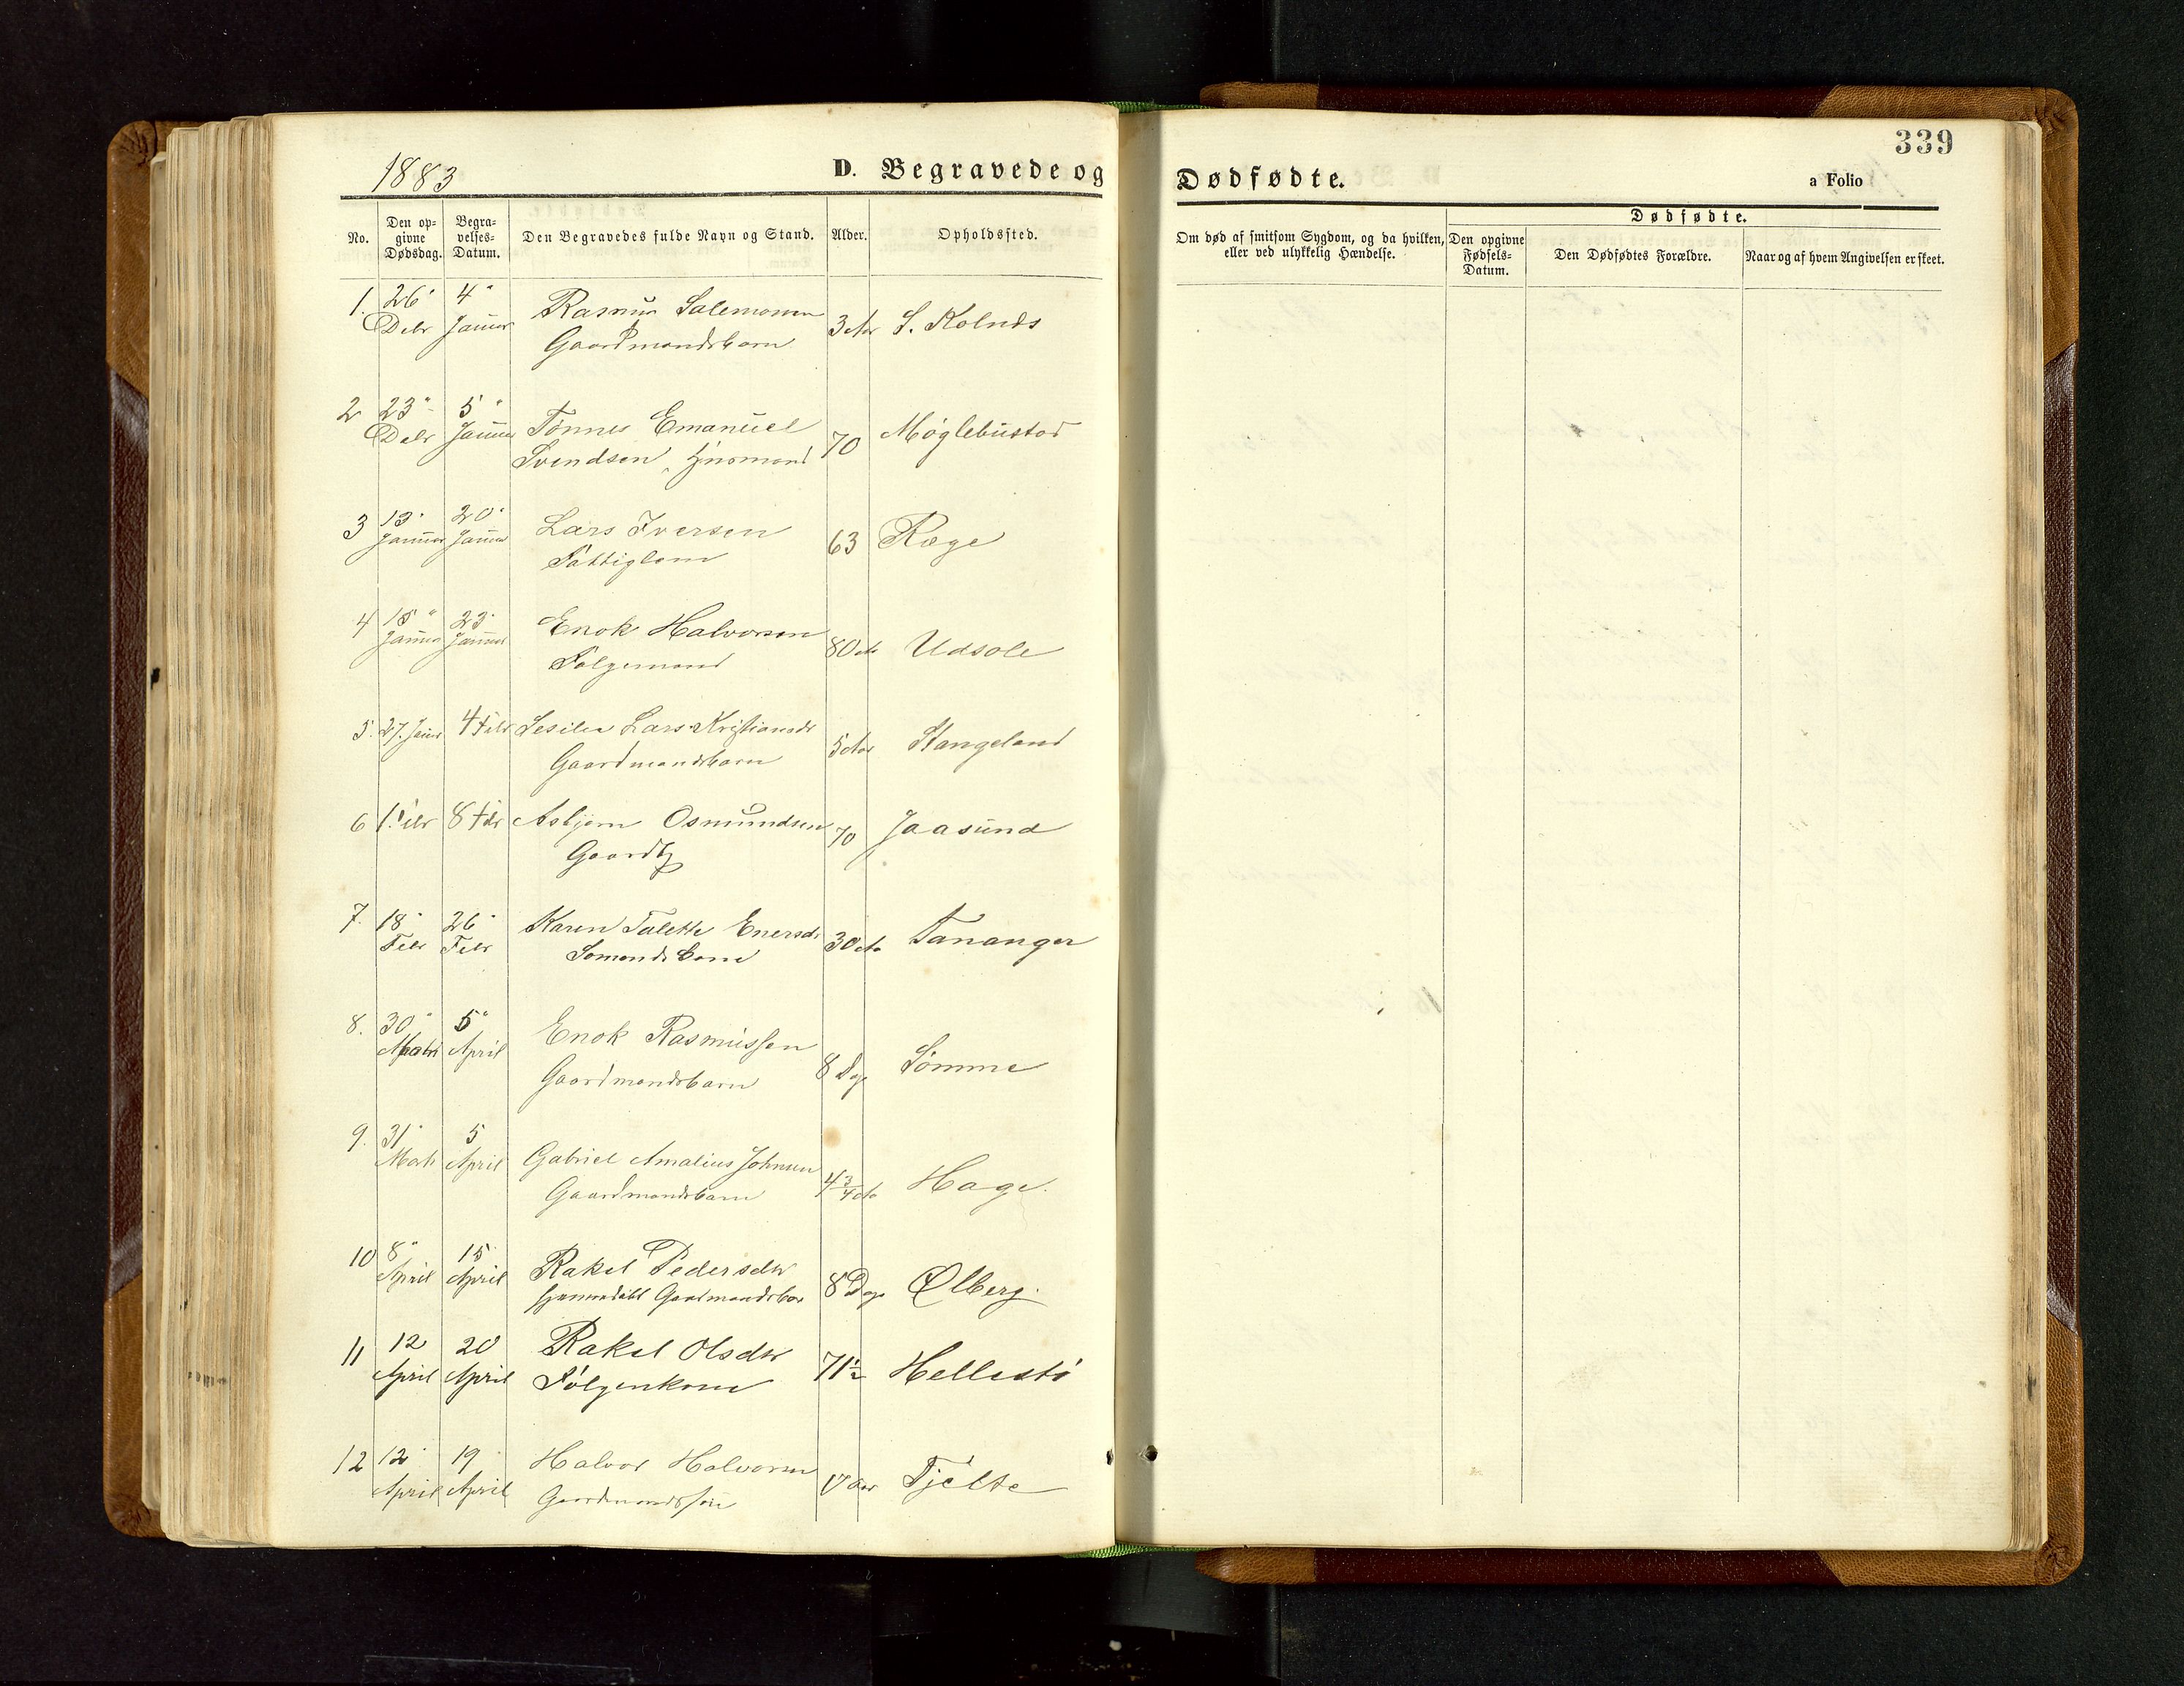 339
1883
D. Begravede og Dødfødte.
a Folio
No.
Den op-
givne
Dødsdag.
Begra-
velses-
Datum.
Den Begravedes fulde Navn og Stand.
Alder.
Opholdssted.
Om død af smitsom Sygdom, og da hvilken,
eller ved ulykkelig Hændelse.
Dødfødte.
Den opgivne
Fødsels-
Datum.
Den Dødfødtes Forældre.
Naar og af hvem Angivelsen er skeet.
1. 26 4 Rasmus Salemonsen
Debr Januar 3 S. Kolnæs
Gaardmandsbarn
2 23 5 Tønnes Emanuel 70 Møglebustad
Debr Januar
Svendsen, Huusmand
3 13 20 Lars Iversen 63 Ræge
Januar Januar
Fattiglem
4 15 23 Enok Halvorsen 80 Udsole
Januar Januar
Følgemand
5. 27. Januar 4 Febr Sesilia Lars Kristiansdr 5 Stangeland
Gaardmandsbarn
6 1. Febr 8 Febr Asbjørn Osmundsen 70 Jaasund
Gaardbr
7. 18 26 Karen Talette Enersdr 30 Tananger
Febr Febr
Sømandsbarn
8. 30 5 Enok Rasmussen 8 Dage Sømme
Marts April
Gaardmandsbarn
9. 31 5 Gabriel Amalius Johnsen 4 3/4 Hage
Marts April
Gaardmandsbarn
10 8 15 Rakel Pedersdtr 8 Dage Ølberg.
April April
hjemmedøbt Gaardmandsbar
11 12 20 Rakel Olsdtr 71 1/2 Hellestø
April April
Følgenkone
12 12 19 Halvor Halvorsen 17 Aar Tjelte
April April
Gaardmandssøn